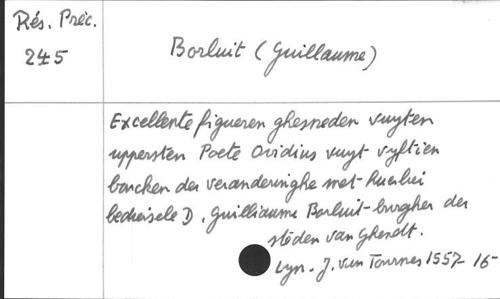 Rés. Préc.
245
Borluit (Guillaume)
Excellente figueren ghesneden vuyten
uppersten Poete Ovidius vuyt vyftien
boucken der veranderinghe met huerlier
bediedsele D. Guilliaume Borluit-burgher der
steden van Ghendt.
Lyn. J. van Tournes 1557 16-